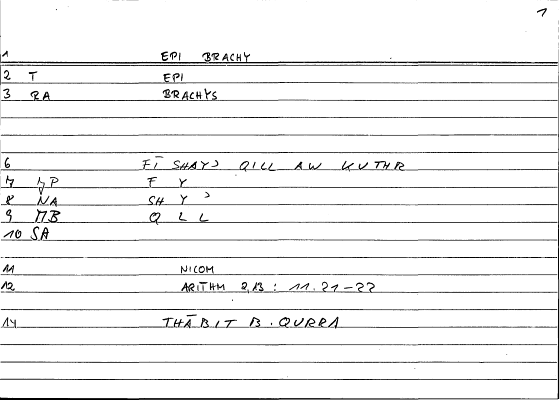 1
1 EPI BRACHY
2 T EPI
3 RA BRACHYS
6 FĪ SHAYʾ QILL AW KUTHR
7 NP F Y
8 NA SH Y ʾ
9 MB Q L L
10 SA
11 NICOM
12 ARITHM 2,13 : 11.21-22
14 THĀBIT B. QURRA